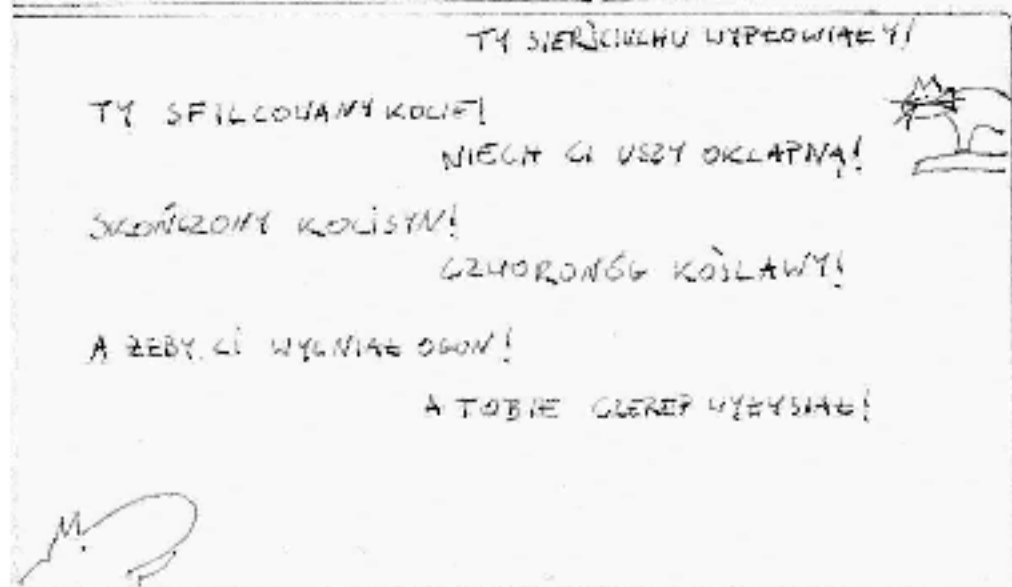 TY SIERŚCIUCHU WYPŁOWIAŁY!
TY SFILCOWANY KOCIE!
NIECH CI USZY OKLAPNĄ!
SKOŃCZONY KOCISYN!
CZWORONÓG KOŚLAWY!
A ŻEBY CI WYGNIAŁ OGON!
A TOBIE CZEREP WYŁYSIAŁ!